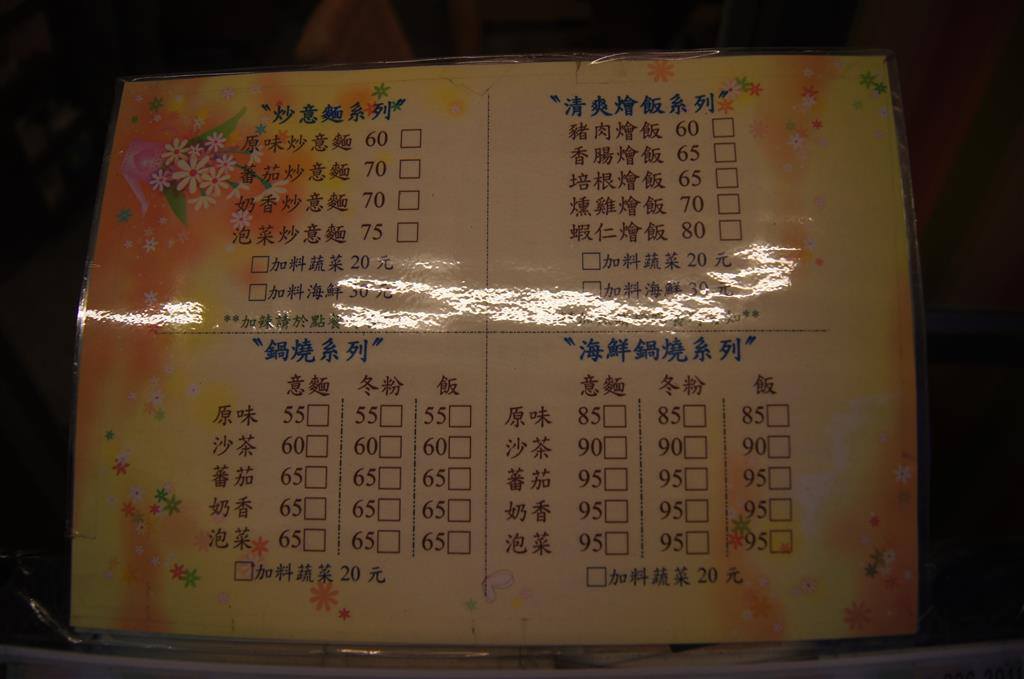 〝炒意麵系列〞
原味炒意麵 60 □
蕃茄炒意麵 70 □
奶香炒意麵 70 □
泡菜炒意麵 75 □
□加料蔬菜 20 元
□加料海鮮 30 元
**加辣請於點餐
〝清爽燴飯系列〞
豬肉燴飯 60 □
香腸燴飯 65 □
培根燴飯 65 □
燻雞燴飯 70 □
蝦仁燴飯 80 □
□加料蔬菜 20 元
□加料海鮮 30 元
**
〝鍋燒系列〞
意麵 冬粉 飯
原味 55□ 55□ 55□
沙茶 60□ 60□ 60□
蕃茄 65□ 65□ 65□
奶香 65□ 65□ 65□
泡菜 65□ 65□ 65□
□加料蔬菜 20 元
〝海鮮鍋燒系列〞
意麵 冬粉 飯
原味 85□ 85□ 85□
沙茶 90□ 90□ 90□
蕃茄 95□ 95□ 95□
奶香 95□ 95□ 95□
泡菜 95□ 95□ 95□
□加料蔬菜 20 元